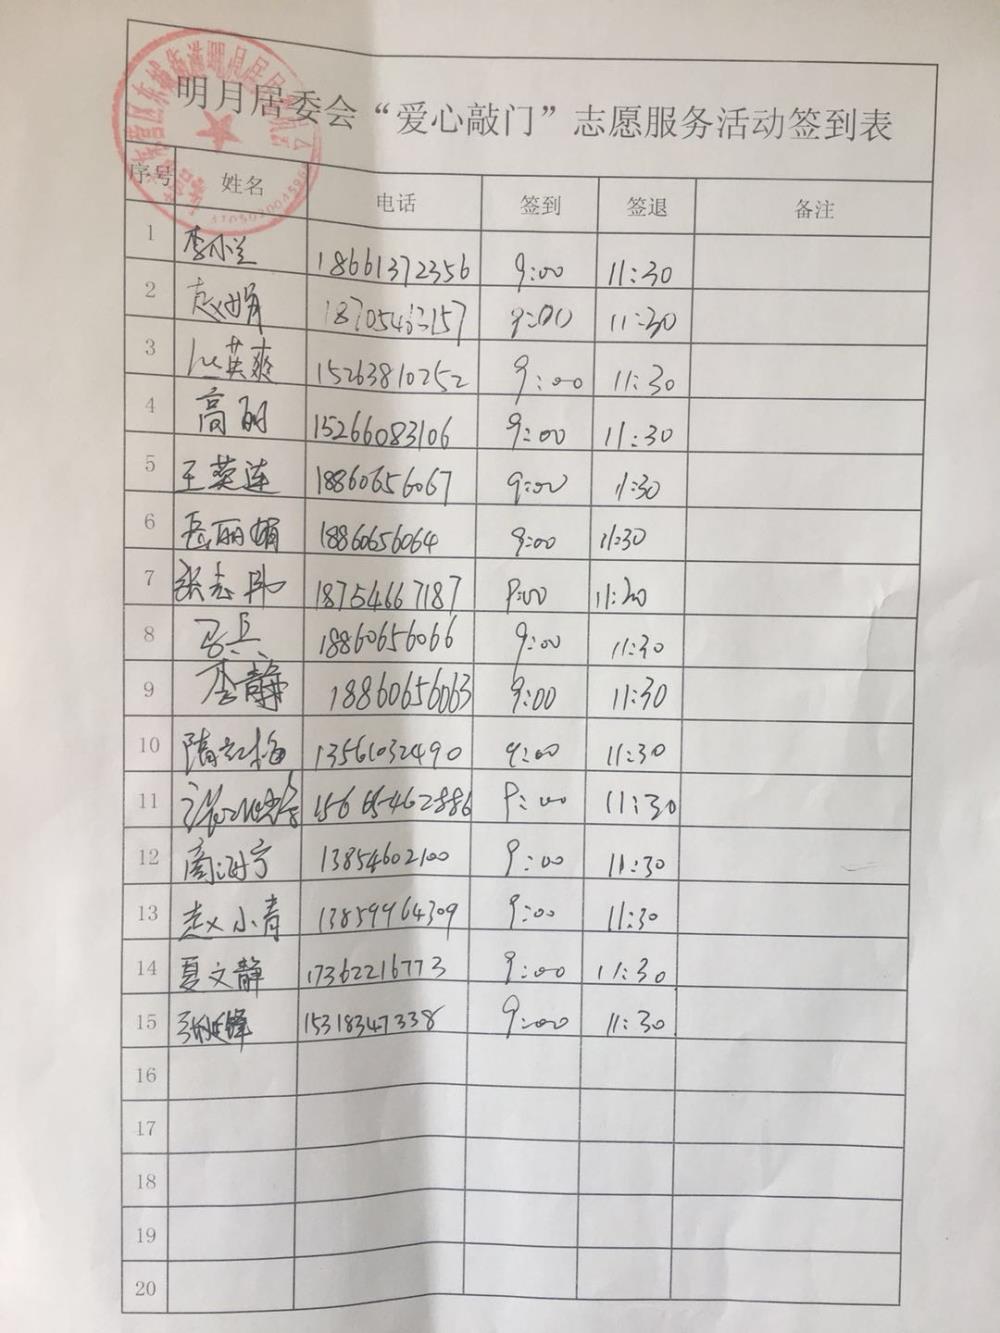 明月居委会“爱心敲门”志愿服务活动签到表
序号 姓名 电话 签到 签退 备注
1 李小兰 18661372356 9:00 11:30
2 赵娟 9:00 11:30
3 英爽 15263810252 9:00 11:30
4 高丽 15266083106 9:00 11:30
5 王葵连 18860656067 9:00 11:30
6 岳丽娟 18860656064 9:00 11:30
7 张志 18754667187 9:00 11:30
8 马兵 18860656066 9:00 11:30
9 李静 18860656063 9:00 11:30
10 隋红梅 13561032490 9:00 11:30
11 15665462886 9:00 11:30
12 周 13854602100 9:00 11:30
13 赵小青 13859964309 9:00 11:30
14 夏文静 17362216773 9:00 11:30
15 15318347338 9:00 11:30
16
17
18
19
20